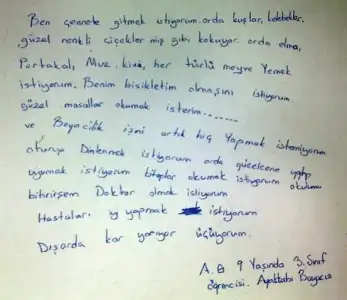 Ben cennete gitmek istiyorum. orda kuşlar, kelebekler,
güzel renkli çiçekler mis gibi kokuyor. orda elma,
Portakal, Muz, kivi, her türlü meyve Yemek
istiyorum. Benim bisikletim olmasını istiyorum
güzel masallar okumak isterim......
ve Boyacilik işini artık hiç Yapmak istemiyorum
oturup Dinlenmek istiyorum orda güzelcene yatıp
uyumak istiyorum kitaplar okumak istiyorum okulumu
bitirirsem Doktor olmak istiyorum
Hastaları iyi yapmak istiyorum
Dışarda kar yarıyor üşüyorum.
A.B 9 Yaşında 3. Sınıf
öğrencisi. Ayakkabı Boyacısı